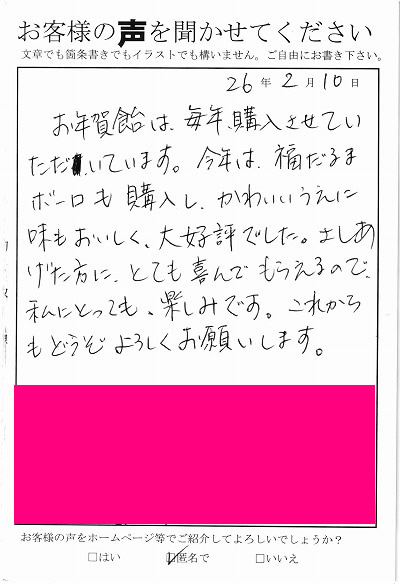 お客様の声を聞かせてください
文章でも箇条書きでもイラストでも構いません。ご自由にお書き下さい。
26年2月10日
お年賀飴は、毎年、購入させてい
ただいています。今年は、福だるま
ボーロも購入し、かわいいうえに
味もおいしく、大好評でした。さしあ
げた方に、とても喜んでもらえるので、
私にとっても、楽しみです。これから
もどうぞよろしくお願いします。
お客様の声をホームページ等でご紹介してよろしいでしょうか？
□はい ☑匿名で □いいえ